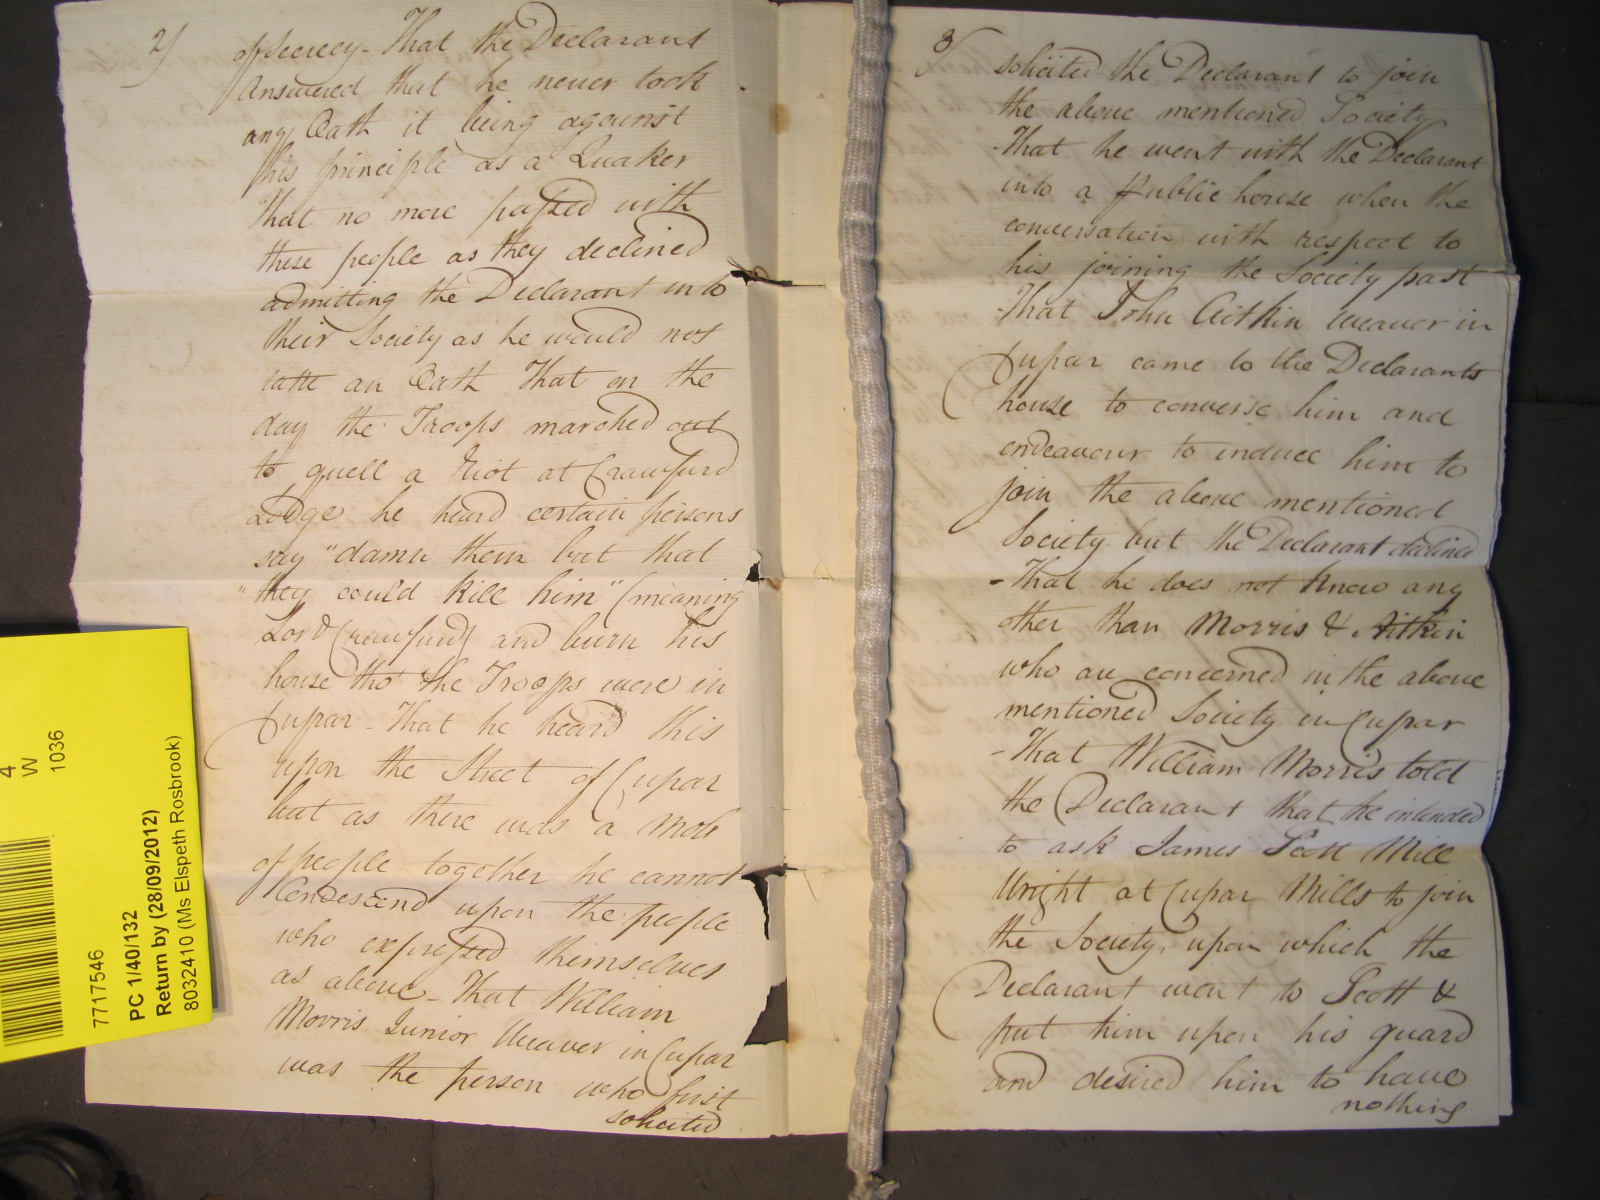 2/
of Secrecy - That the Declarant
Answered that he never took
any Oath it being against
his principle as a Quaker
That no more passed with
these people as they declined
admitting the Declarant into
their Society as he would not
take an Oath That on the
day the Troops marched out
to quell a Riot at Crawfurd
Lodge he heard certain persons
say "damn them but that
"they could kill him" (meaning
Lord Crawfurd) and burn his
house tho' the Troops were in
Cupar - That he heard this
upon the Street of Cupar
but as there was a Mob
of people together he cannot
Condescend upon the people
who expressed themselves
as above - That William
Morris Junior Weaver in Cupar
was the person who first
solicited
3/
solicited the Declarant to join
the above mentioned Society
- That he went with the Declarant
into a Public house when the
conversation with respect to
his joining the Society past
- That John Aitkin Weaver in
Cupar came to the Declarants
house to converse him and
endeavour to induce him to
join the above mentioned
Society but the Declarant declined
- That he does not know any
other than Morris & Aitkin
who are concerned in the above
mentioned Society in Cupar
- That William Morris told
the Declarant that he intended
to ask James Scott Mill
Wright at Cupar Mills to join
the Society, upon which the
Declarant went to Scott &
put him upon his guard
and desired him to have
nothing
4
W
1036
7717546
PC 1/40/132
Return by (28/09/2012)
8032410 (Ms Elspeth Rosbrook)